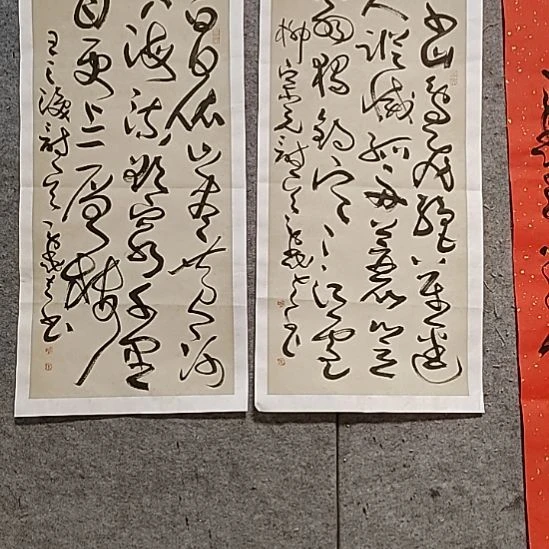 山鸟飞绝万径
人踪灭孤舟蓑笠
翁独钓寒江雪
柳宗元诗一首
白日依山尽黄河
入海流欲穷千里
目更上一层楼
王之涣诗一首